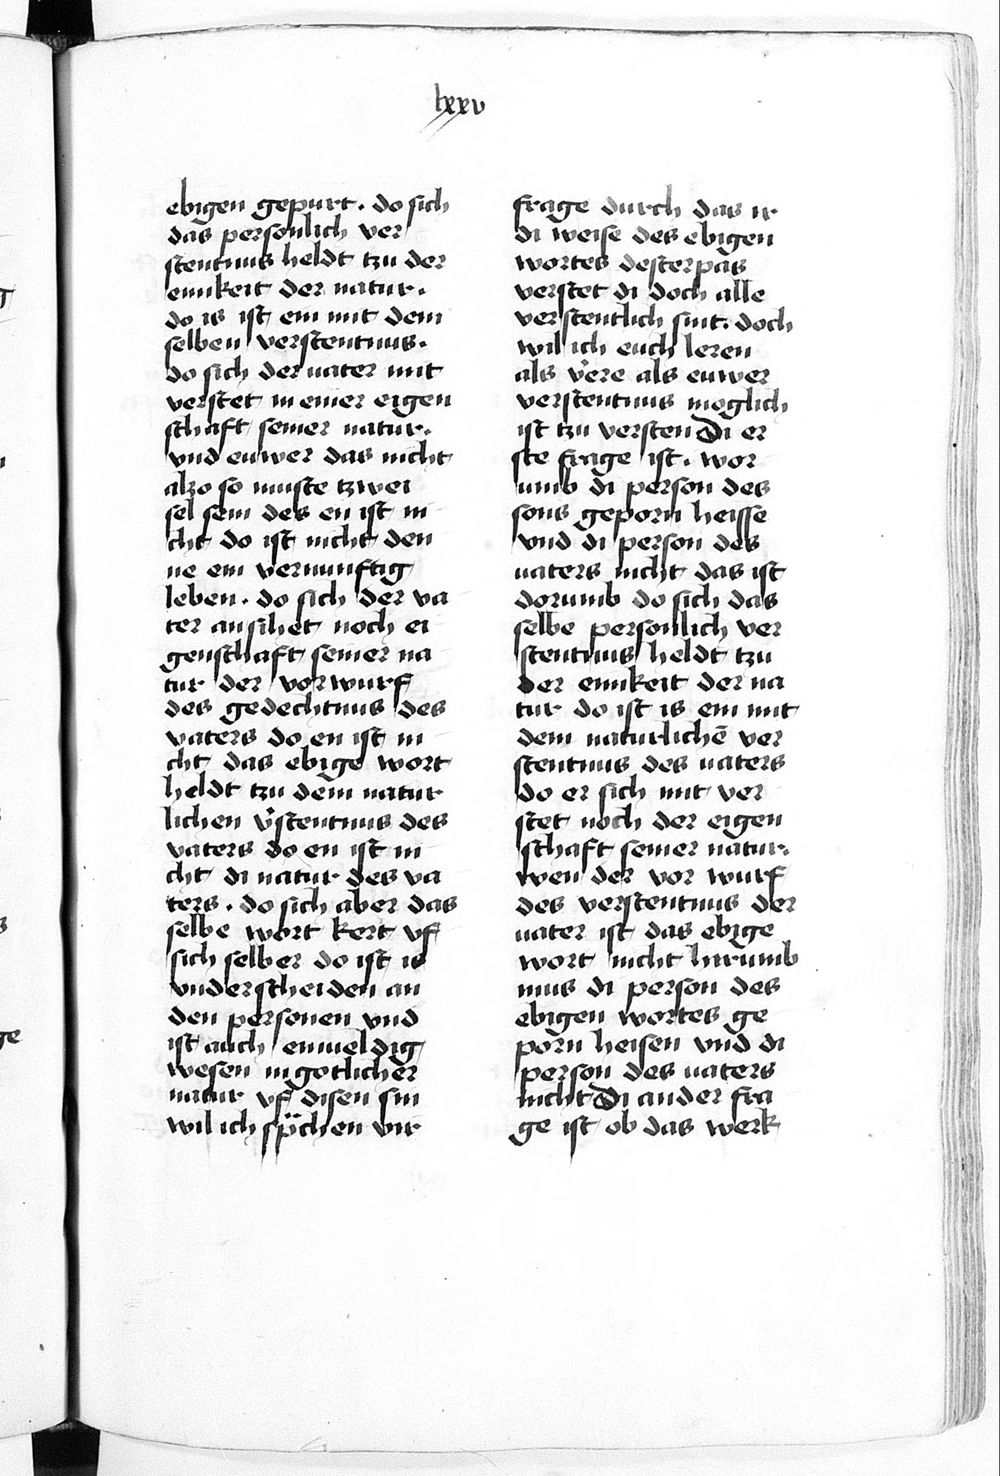 lxxv
ebigen gepurt. do sich
das personlich ver
stentnus heldt tzu der
einikeit der natur.
do is ist ein mit dem
selben verstentnus.
do sich der uater mit
verstet in einer eigen
schaft seiner natur.
vnd euwer das nicht
alzo so muste tzwei
sel sein des en ist ni
cht do ist nicht den
ne ein vernunftig
leben. do sich der va
ter ansihet noch ei
genschaft seiner na
tur der vorwurf
des gedechtnus des
vaters do en ist ni
cht das ebige wort
heldt tzu dem natur
lichen v̾stentnus des
vaters do en ist ni
cht di natur des va
ters. do sich aber das
selbe wort kert vf
sich selber do ist is
vnderscheiden an
den personen vnd
ist auch einueldig
wesen in gotlicher
natur vf disen sin
wil ich sp̈chen vir
frage durch das ir
di weise des ebigen
wortes desterpas
verstet di doch alle
verstentlich sint. doch
wil ich euch leren
als v̾ere als euwer
verstentnus moglich
ist tzu versten Di er
ste frage ist. wor
umb di person des
sons geporn heisse
vnd di person des
uaters nicht das ist
dorumb do sich das
selbe personlich ver
stentnus heldt tzu
der einikeit der na
tur do ist is ein mit
dem naturlichē ver
stentnus des uaters
do er sich mit ver
stet noch der eigen
schaft seiner natur.
wen der vor wurf
des verstentnus der
uater ist das ebige
wort nicht hirumb
mus di person des
ebigen wortes ge
porn heisen vnd di
person des uaters
nicht Di ander fra
ge ist ob das werk